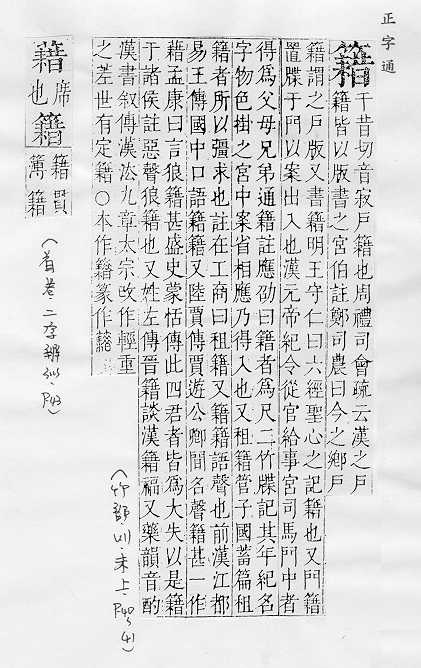 正字通
籍 千昔切音寂戶籍也周禮司會疏云漢之戶
籍皆以版書之宮伯註鄭司農曰今之鄉戶
籍謂之戶版又書籍明王守仁曰六經聖心之記籍也又門籍
置牒于門以案出入也漢元帝紀令從官給事宮司馬門中者
得爲父母兄弟通籍註應劭曰籍者爲尺二竹牒記其年紀名
字物色掛之宮中案省相應乃得入也又租籍管子國蓄篇租
籍者所以彊求也註在工商曰租籍又籍籍語聲也前漢江都
易王傳國中口語籍籍又陸賈傳賈遊公卿間名聲籍甚一作
藉孟康曰言狼籍甚盛史蒙恬傳此四君者皆爲大失以是籍
于諸侯註惡聲狼籍也又姓左傳晉籍談漢籍福又藥韻音酌
漢書叙傳漢法九章太宗改作輕重
之差世有定籍○本作籍篆作
（竹部 未上．P40, 41）
藉 席也
籍 籍貫 簿籍
（首卷二字辨似．P43）